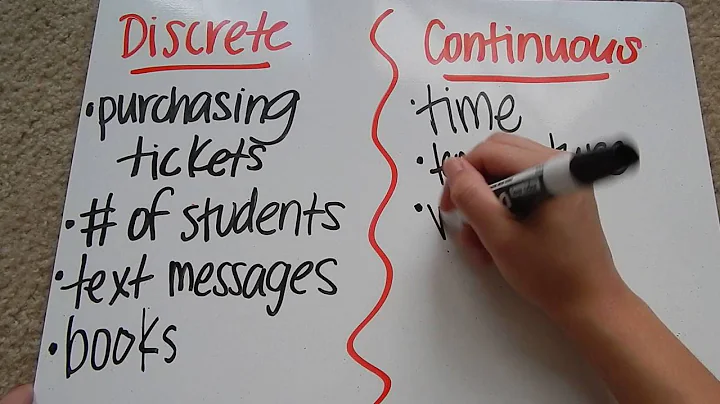 Discrete
•purchasing
tickets
•# of students
•text messages
•books
Continuous
•time
•
•